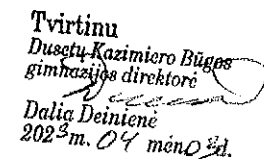 Tvirtinu
Dusetų Kazimiero Būgos
gimnazijos direktorė
Dalia Deinienė
2023 m. 04 mėn. d.